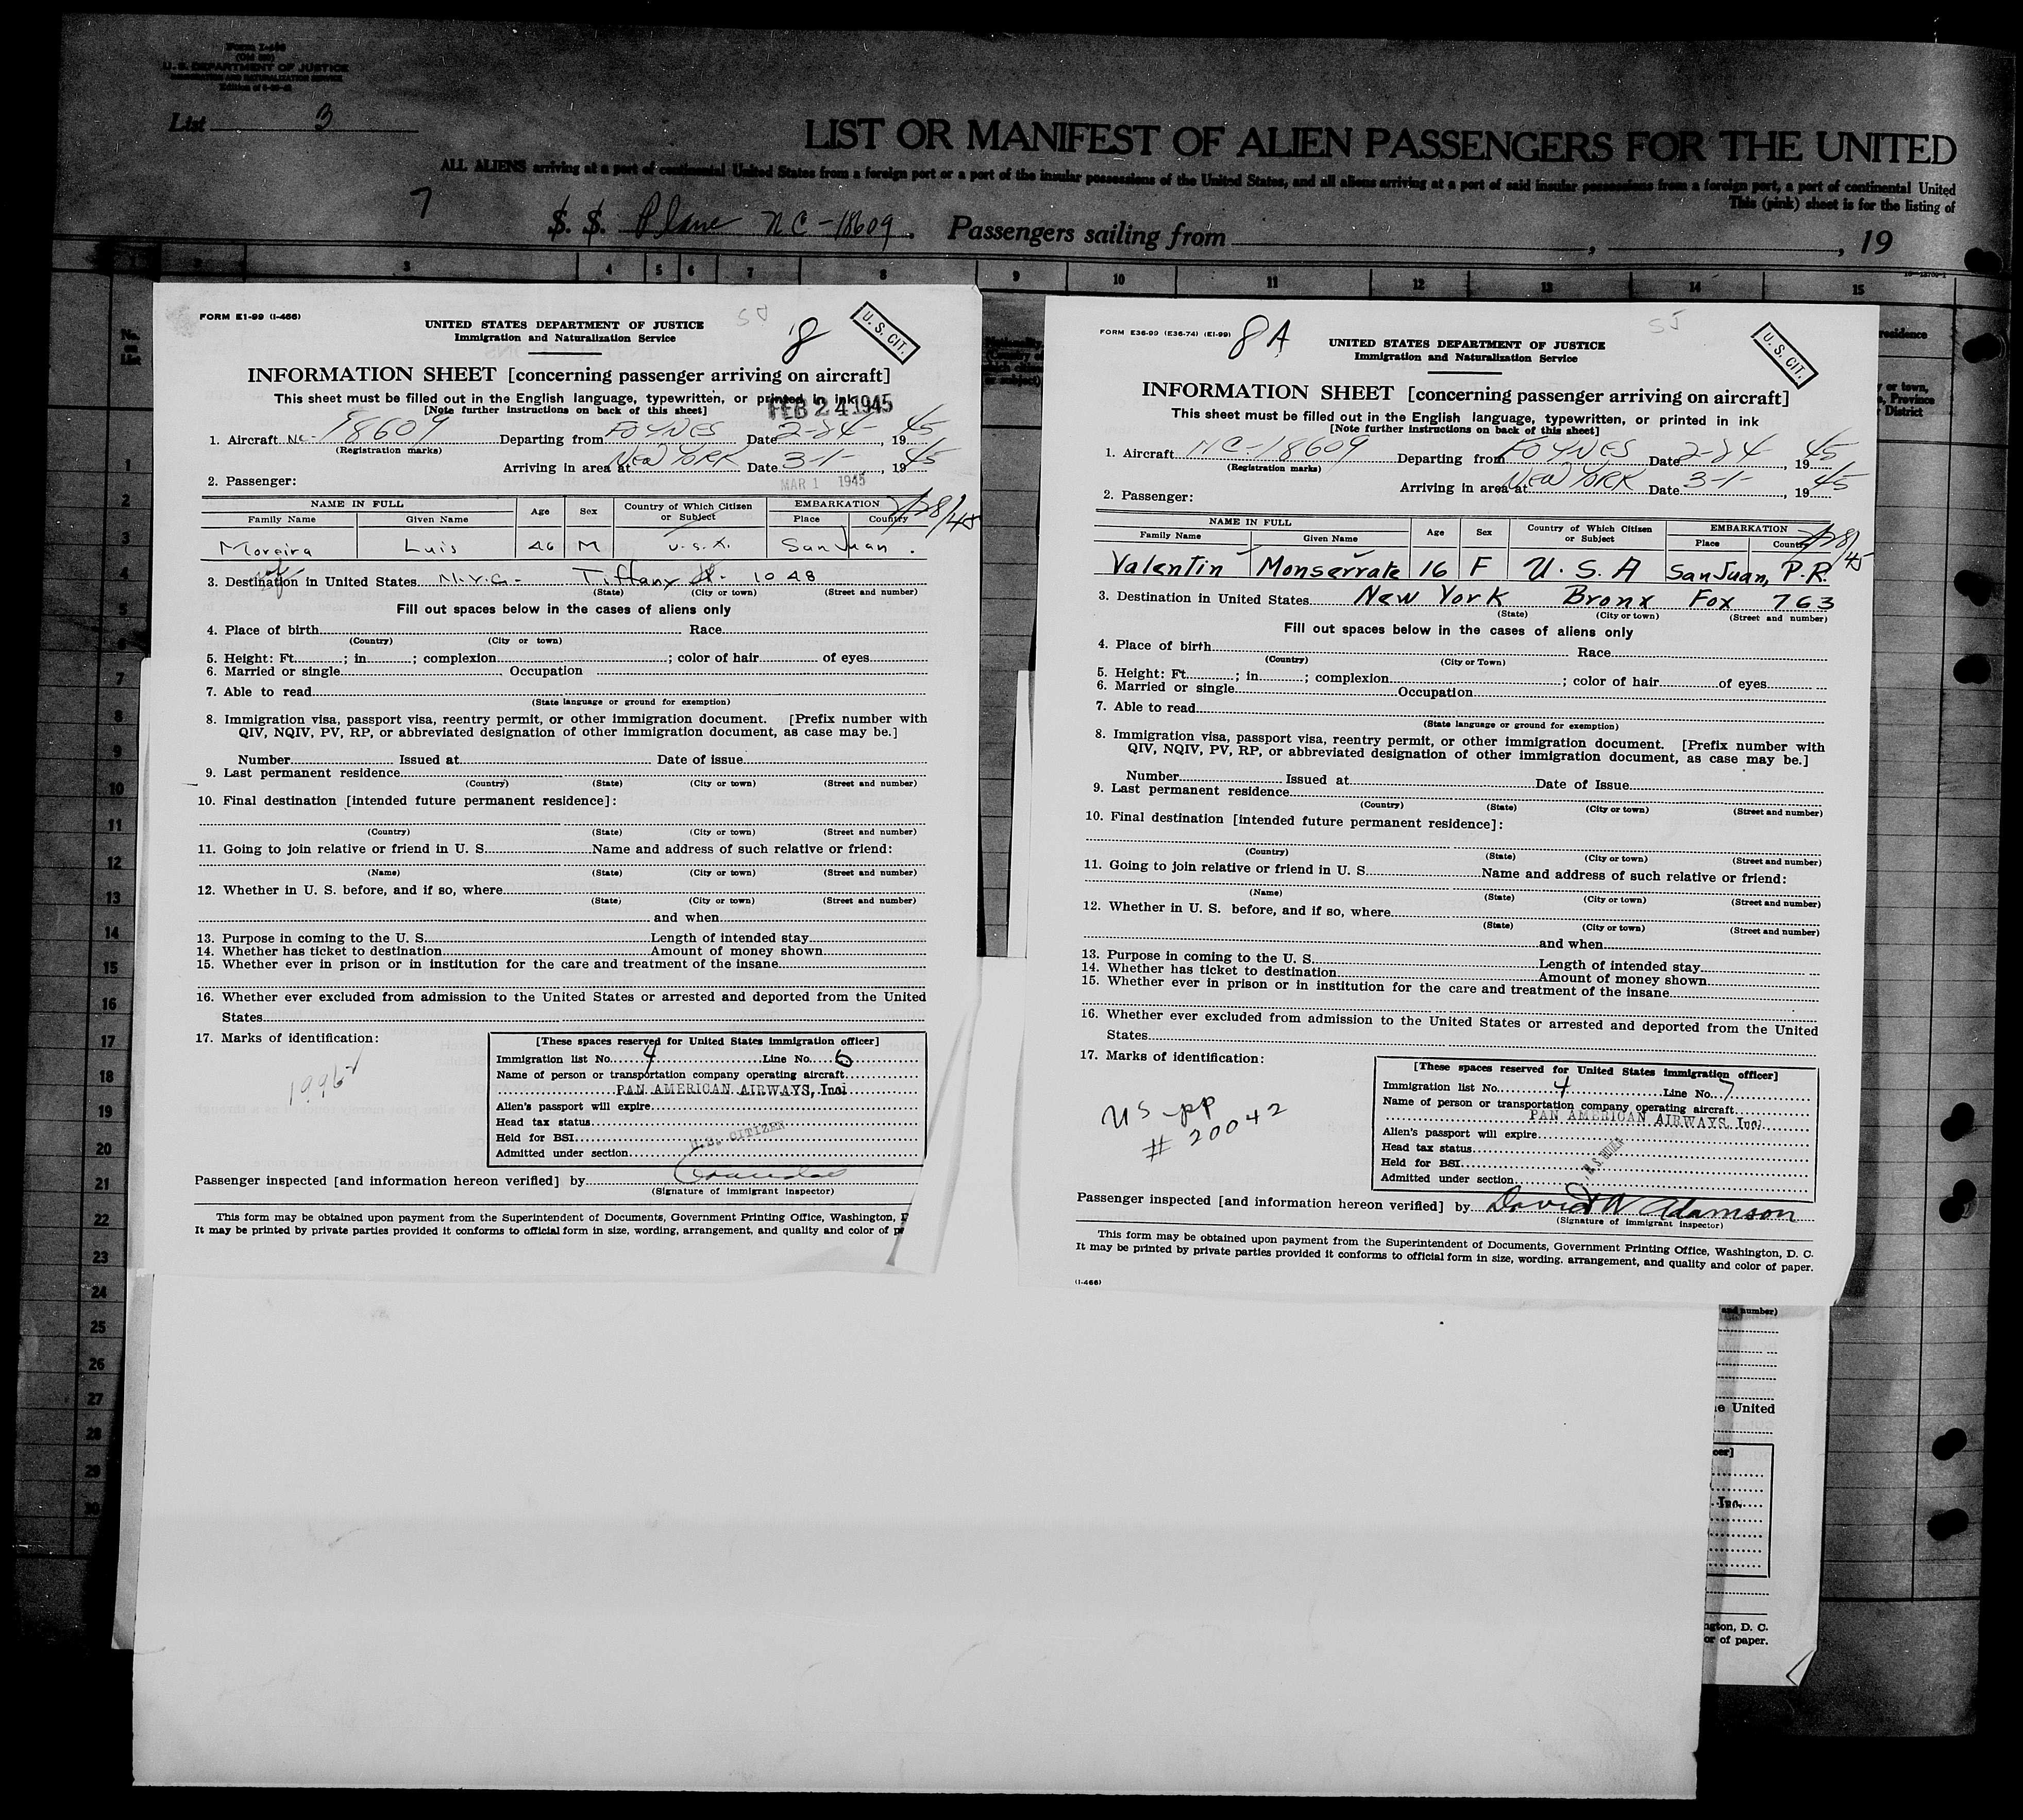 Form I-466
U. S. DEPARTMENT OF JUSTICE
IMMIGRATION AND NATURALIZATION SERVICE
List 3
LIST OR MANIFEST OF ALIEN PASSENGERS FOR THE UNITED
ALL ALIENS arriving at a port of continental United States from a foreign port or a port of the insular possessions of the United States, and all aliens arriving at a port of said insular possessions from a foreign port, a port of continental United
This (pink) sheet is for the listing of
7
S. S. Plane NC-18609. Passengers sailing from , , 19
2 3 4 5 6 7 8 9 10 11 12 13 14 15
FORM E1-99 (I-466)
SJ
8
U. S. CIT.
UNITED STATES DEPARTMENT OF JUSTICE
Immigration and Naturalization Service
INFORMATION SHEET [concerning passenger arriving on aircraft]
This sheet must be filled out in the English language, typewritten, or printed in ink
[Note further instructions on back of this sheet]
FEB 24 1945
1. Aircraft NC-18609 Departing from FOYNES Date 2-24-, 1945
(Registration marks)
Arriving in area at NEW YORK Date 3-1-, 1945
2. Passenger:
MAR 1 1945
NAME IN FULL Age Sex Country of Which Citizen or Subject EMBARKATION
Family Name Given Name Place Country
2/28/45
Moreira Luis 46 M U.S.A. San Juan.
3. Destination in United States N.Y.C. - Tiffany St. 1048
(State) (City or town) (Street and number)
Fill out spaces below in the cases of aliens only
4. Place of birth Race
(Country) (City or town)
5. Height: Ft. ; in ; complexion ; color of hair of eyes
6. Married or single Occupation
7. Able to read
(State language or ground for exemption)
8. Immigration visa, passport visa, reentry permit, or other immigration document. [Prefix number with
QIV, NQIV, PV, RP, or abbreviated designation of other immigration document, as case may be.]
Number Issued at Date of issue
9. Last permanent residence
(Country) (State) (City or town) (Street and number)
10. Final destination [intended future permanent residece]:
(Country) (State) (City or town) (Street and number)
11. Going to join relative or friend in U. S. Name and address of such relative or friend:
(Name) (State) (City or town) (Street and number)
12. Whether in U. S. before, and if so, where
(State) (City or town) (Street and number)
and when
13. Purpose in coming to the U. S. Length of intended stay
14. Whether has ticket to destination Amount of money shown
15. Whether ever in prison or in institution for the care and treatment of the insane
16. Whether ever excluded from admission to the United States or arrested and deported from the United
States
17. Marks of identification:
[These spaces reserved for United States immigration officer]
Immigration list No. 4 Line No. 6
Name of person or transportation company operating aircraft
PAN AMERICAN AIRWAYS, Inc.
Alien's passport will expire
Head tax status
Held for BSI
U.S. CITIZEN
Admitted under section
Passenger inspected [and information hereon verified] by
(Signature of immigrant inspector)
This form may be obtained upon payment from the Superintendent of Documents, Government Printing Office, Washington,
It may be printed by private parties provided it conforms to official form in size, wording, arrangement, and quality and color of
FORM E36-99 (E36-74) (E1-99)
8A
SJ
U. S. CIT.
UNITED STATES DEPARTMENT OF JUSTICE
Immigration and Naturalization Service
INFORMATION SHEET [concerning passenger arriving on aircraft]
This sheet must be filled out in the English language, typewritten, or printed in ink
[Note further instructions on back of this sheet]
1. Aircraft NC-18609 Departing from FOYNES Date 2-24-, 1945
(Registration marks)
Arriving in area at NEW YORK Date 3-1-, 1945
2. Passenger:
NAME IN FULL Age Sex Country of Which Citizen or Subject EMBARKATION
Family Name Given Name Place Country
2/28/45
Valentin Monserrate 16 F U.S.A San Juan, P.R.
3. Destination in United States New York Bronx Fox 763
(State) (City or town) (Street and number)
Fill out spaces below in the cases of aliens only
4. Place of birth Race
(Country) (City or Town)
5. Height: Ft. ; in ; complexion ; color of hair of eyes
6. Married or single Occupation
7. Able to read
(State language or ground for exemption)
8. Immigration visa, passport visa, reentry permit, or other immigration document. [Prefix number with
QIV, NQIV, PV, RP, or abbreviated designation of other immigration document, as case may be.]
Number Issued at Date of Issue
9. Last permanent residence
(Country) (State) (City or town) (Street and number)
10. Final destination [intended future permanent residence]:
(Country) (State) (City or town) (Street and number)
11. Going to join relative or friend in U. S. Name and address of such relative or friend:
(Name) (State) (City or town) (Street and number)
12. Whether in U. S. before, and if so, where
(State) (City or town) (Street and number)
and when
13. Purpose in coming to the U. S. Length of intended stay
14. Whether has ticket to destination Amount of money shown
15. Whether ever in prison or in institution for the care and treatment of the insane
16. Whether ever excluded from admission to the United States or arrested and deported from the United
States
17. Marks of identification:
US-PP
# 20042
[These spaces reserved for United States immigration officer]
Immigration list No. 4 Line No. 7
Name of person or transportation company operating aircraft
PAN AMERICAN AIRWAYS, Inc.
Alien's passport will expire
Head tax status
Held for BSI
Admitted under section
Passenger inspected [and information hereon verified] by David W Adamson
(Signature of immigrant inspector)
This form may be obtained upon payment from the Superintendent of Documents, Government Printing Office, Washington, D. C.
It may be printed by private parties provided it conforms to official form in size, wording. arrangement, and quality and color of paper.
(I-466)